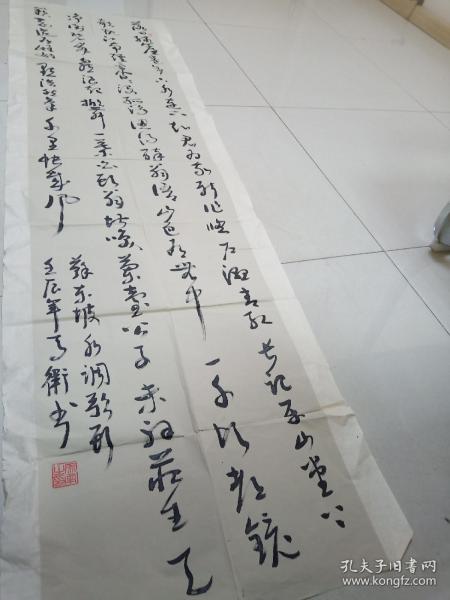 落日绣帘卷亭下水连空知君为我新作窗户湿青红长记平山堂上
欹枕江南烟雨渺渺没孤鸿认得醉翁语山色有无中一千顷都镜
净倒碧峰忽然浪起掀舞一叶白头翁堪笑兰台公子未解庄生天
籁刚道有雌雄一点浩然气千里快哉风
苏东坡水调歌头
壬辰年 衛书
孔夫子旧书网
www.kongfz.com